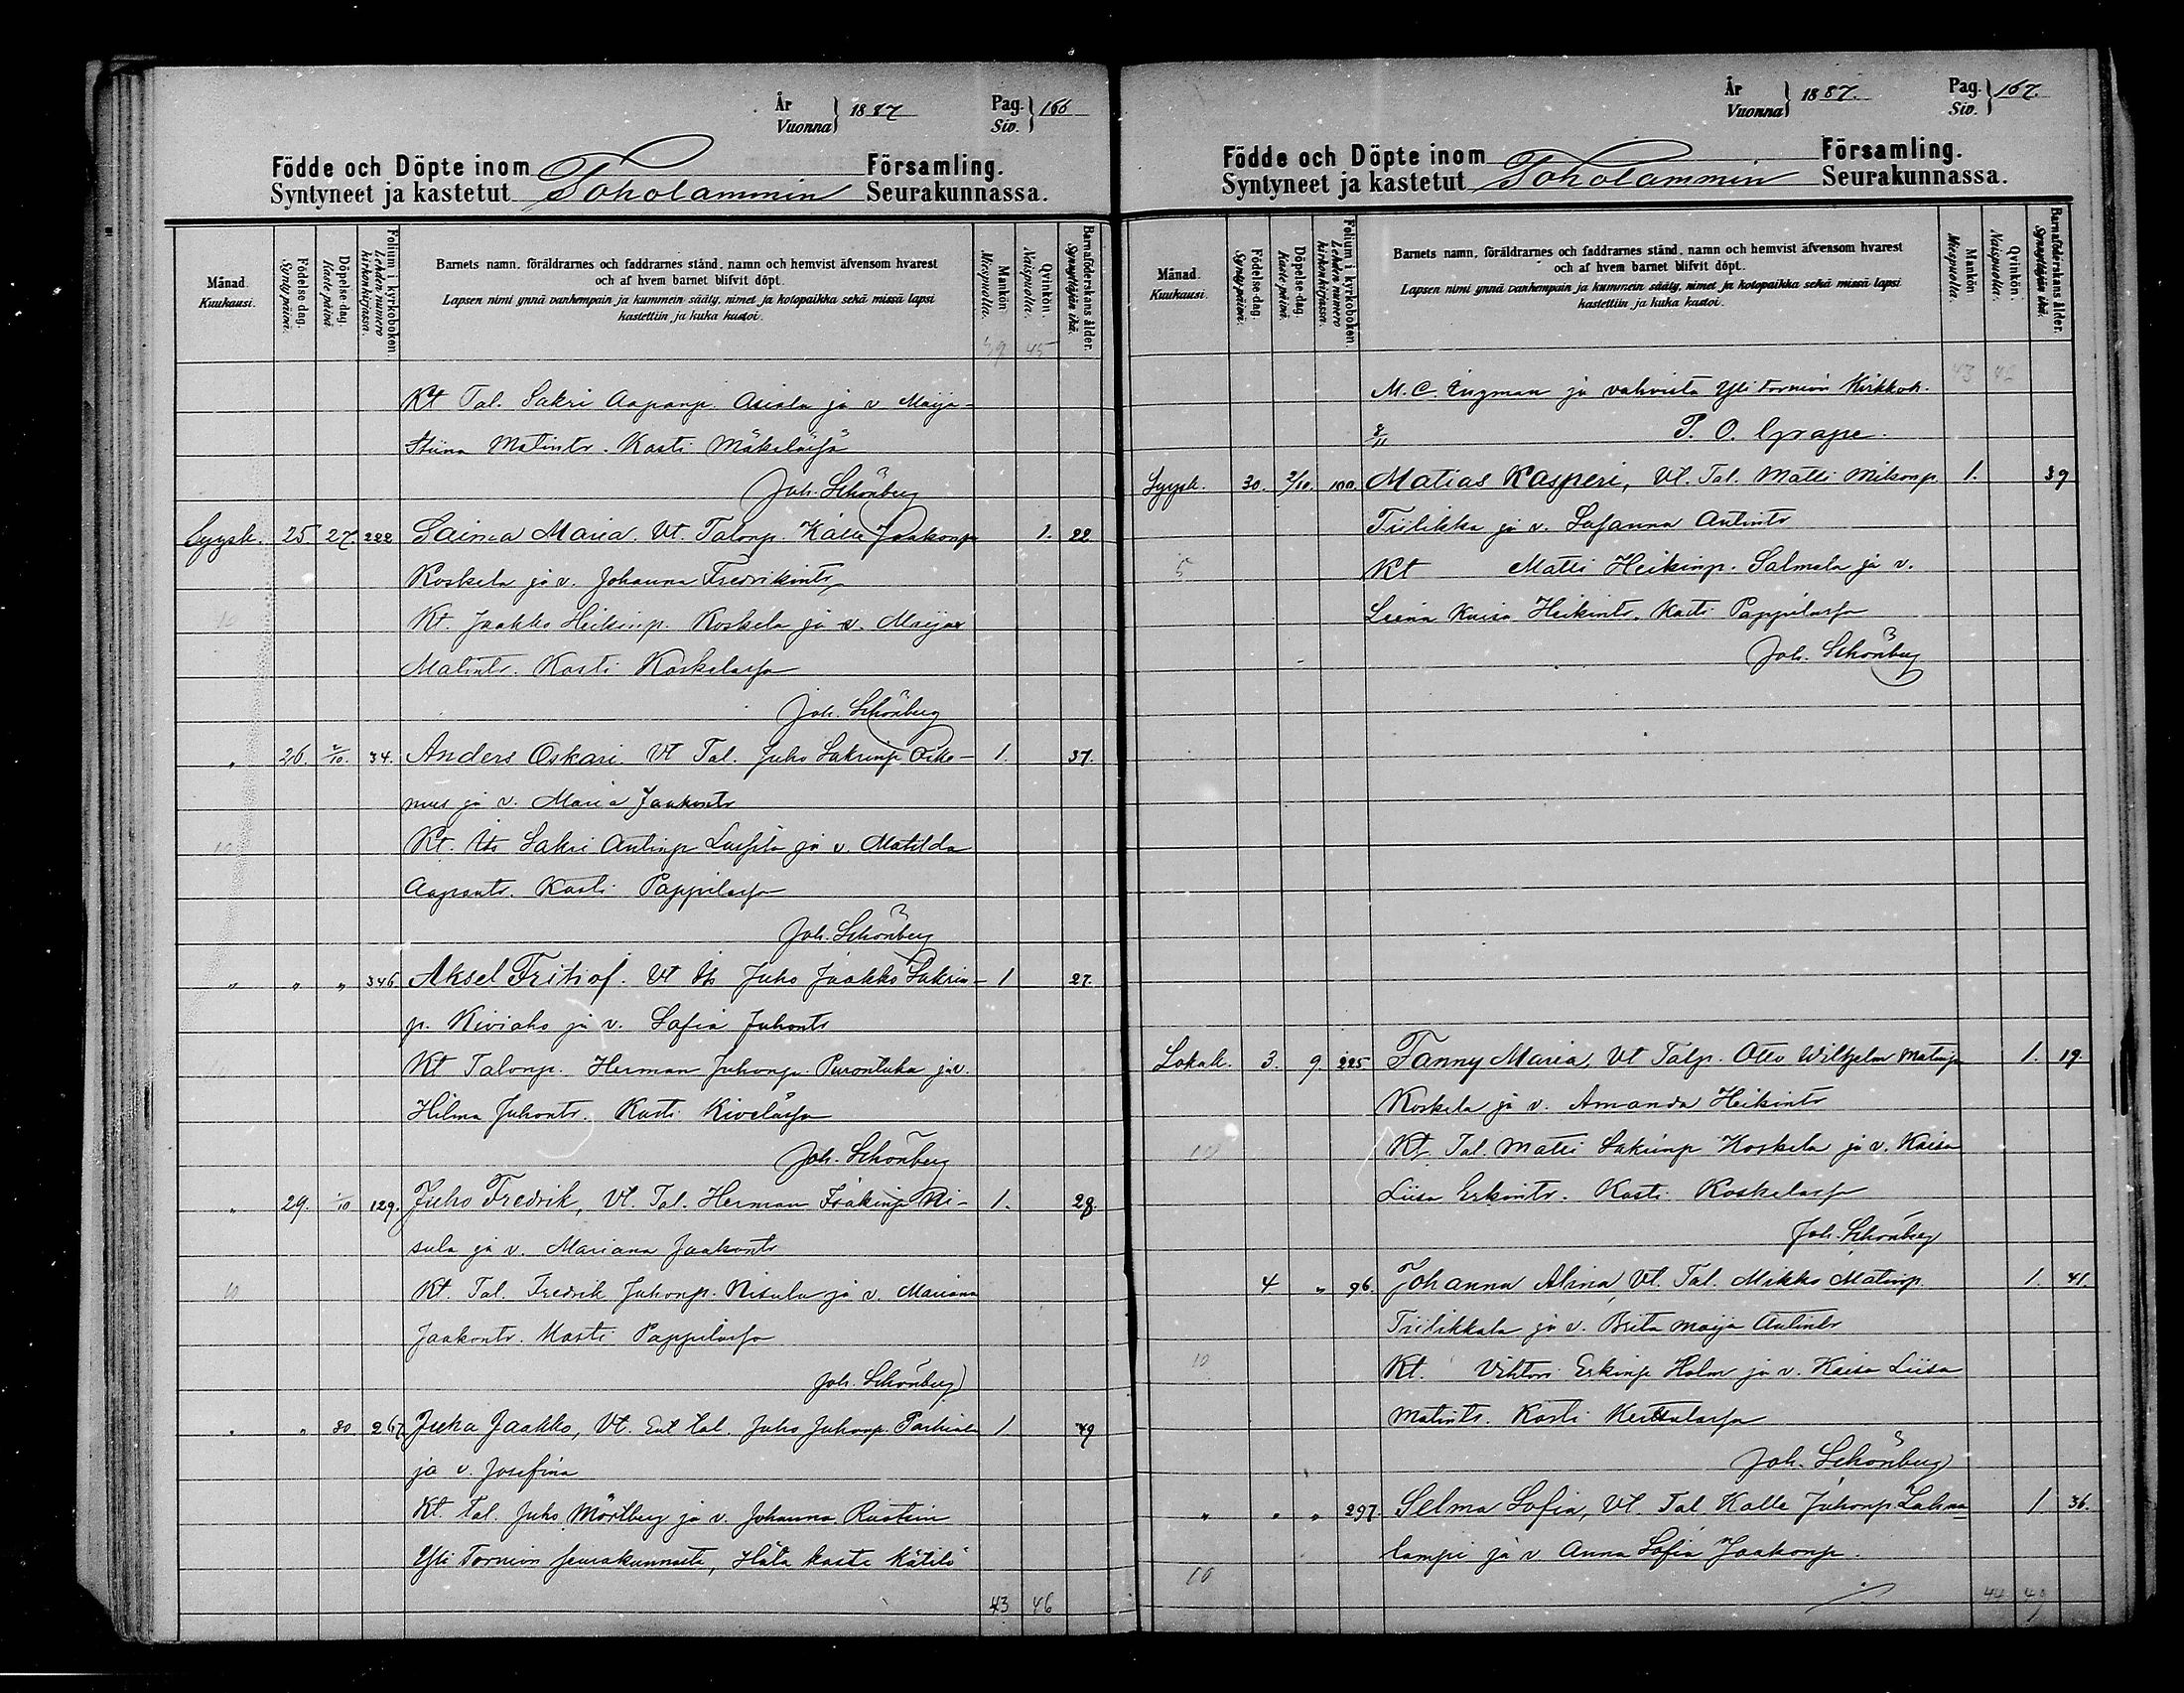 År
Vuonna 1887
Pag.
Siv. 166
Födde och Döpte inom Församling.
Syntyneet ja kastetut Toholammin Seurakunnassa.
Månad. Kuukausi.
Födelse-dag. Synty-päivä.
Döpelse-dag. Kaste-päivä.
Folium i kyrkoboken. Lehden numero kirkonkirjassa.
Barnets namn, föräldrarnes och faddrarnes stånd, namn och hemvist äfvensom hvarest
och af hvem barnet blifvit döpt.
Lapsen nimi ynnä vanhempain ja kummein sääty, nimet ja kotopaikka sekä missä lapsi
kastettiin ja kuka kastoi.
Mankön. Miespuolia.
Qvinkön. Naispuolia.
Barnaföderskans ålder. Synnyttäjän ikä.
39 45
Kt Tal. Sakri Aapanp. Asiala ja v Maija-
Stiina Matintr. Kasti Mäkelässä
Joh. Schönberg
Syysk. 25. 27. 222 Saima Maria. Vt. Talonp. Kalle Jaakonp 1. 22
Koskela ja v. Johanna Fredrikintr
10 Kt. Jaakko Heikinp. Koskela ja v. Maija
Matintr. Kasti Koskelassa
Joh. Schönberg
„ 26. 2/10. 34. Anders Oskari. Vt Tal. Juho Sakrinp Oiko- 1. 37.
nus ja v. Maria Jaakontr
10 Kt. Its Sakri Antinp Lassila ja v. Matilda
Aapontr. Kasti Pappilassa
Joh. Schönberg
„ „ „ 346 Aksel Fritiof. Vt Its Juho Jaakko Sakrin- 1 27.
p. Kiviaho ja v. Sofia Juhontr
Kt Talonp. Herman Juhonp. Purontaka ja v.
Hilma Juhontr. Kasti Kivelässä
Joh. Schönberg
„ 29. 1/10 129. Juho Fredrik, Vt. Tal. Herman Isakinp Ni- 1. 28.
sula ja v. Mariana Jaakontr
10 Kt. Tal. Fredrik Juhonp. Nisula ja v. Mariana
Jaakontr. Kasti Pappilassa
Joh. Schönberg
„ „ 30 267 Juha Jaakko, Vt. Ent tal. Juho Juhonp. Parhiala 1 49
ja v. Josefina
Kt. Tal. Juho Mörtberg ja v. Johanna Rautio
Yli Tornion seurakunnasta, Hätä kaste kätilö
43 46
År
Vuonna 1887.
Pag.
Siv. 167.
Födde och Döpte inom Församling.
Syntyneet ja kastetut Toholammin Seurakunnassa.
Månad. Kuukausi.
Födelse-dag. Synty-päivä.
Döpelse-dag. Kaste-päivä.
Folium i kyrkoboken. Lehden numero kirkonkirjassa.
Barnets namn, föräldrarnes och faddrarnes stånd, namn och hemvist äfvensom hvarest
och af hvem barnet blifvit döpt.
Lapsen nimi ynnä vanhempain ja kummein sääty, nimet ja kotopaikka sekä missä lapsi
kastettiin ja kuka kastoi.
Mankön Miespuolia.
Qvinkön. Naispuolia.
Barnaföderskans ålder. Synnyttäjän ikä.
43 46
M. C. Engman ja vahvista Yli Tornion Kirkkoh.
8/11 P. O. Grape.
Syysk. 30. 2/10. 100. Matias Kasperi, Vt. Tal. Matti Mikonp 1. 39
Tiilikka ja v. Susanna Antintr
5 Kt Matti Heikinp. Salmela ja v.
Leena Kaisa Heikintr. Kasti Pappilassa
Joh. Schönberg
Lokak. 3. 9. 225 Fanny Maria, Vt Talp. Otto Wilhelm Matinp 1. 19.
Koskela ja v. Amanda Heikintr
10 Kt. Tal. Matti Sakrinp Koskela ja v. Kaisa
Liisa Erkintr. Kasti Koskelassa
Joh. Schönberg
4 „ 96. Johanna Alina, Vt. Tal. Mikko Matinp. 1. 41.
Tiilikkala ja v. Brita Maija Antintr
10 Kt. Vihtori Erkinp Holm ja v. Kaisa Liisa
Matintr. Kasti Kerttulassa
Joh. Schönberg
„ „ „ 297. Selma Sofia, Vt. Tal. Kalle Juhonp. Lahna 1. 36.
lampi ja v Anna Sofia Jaakonp.
10
44 49